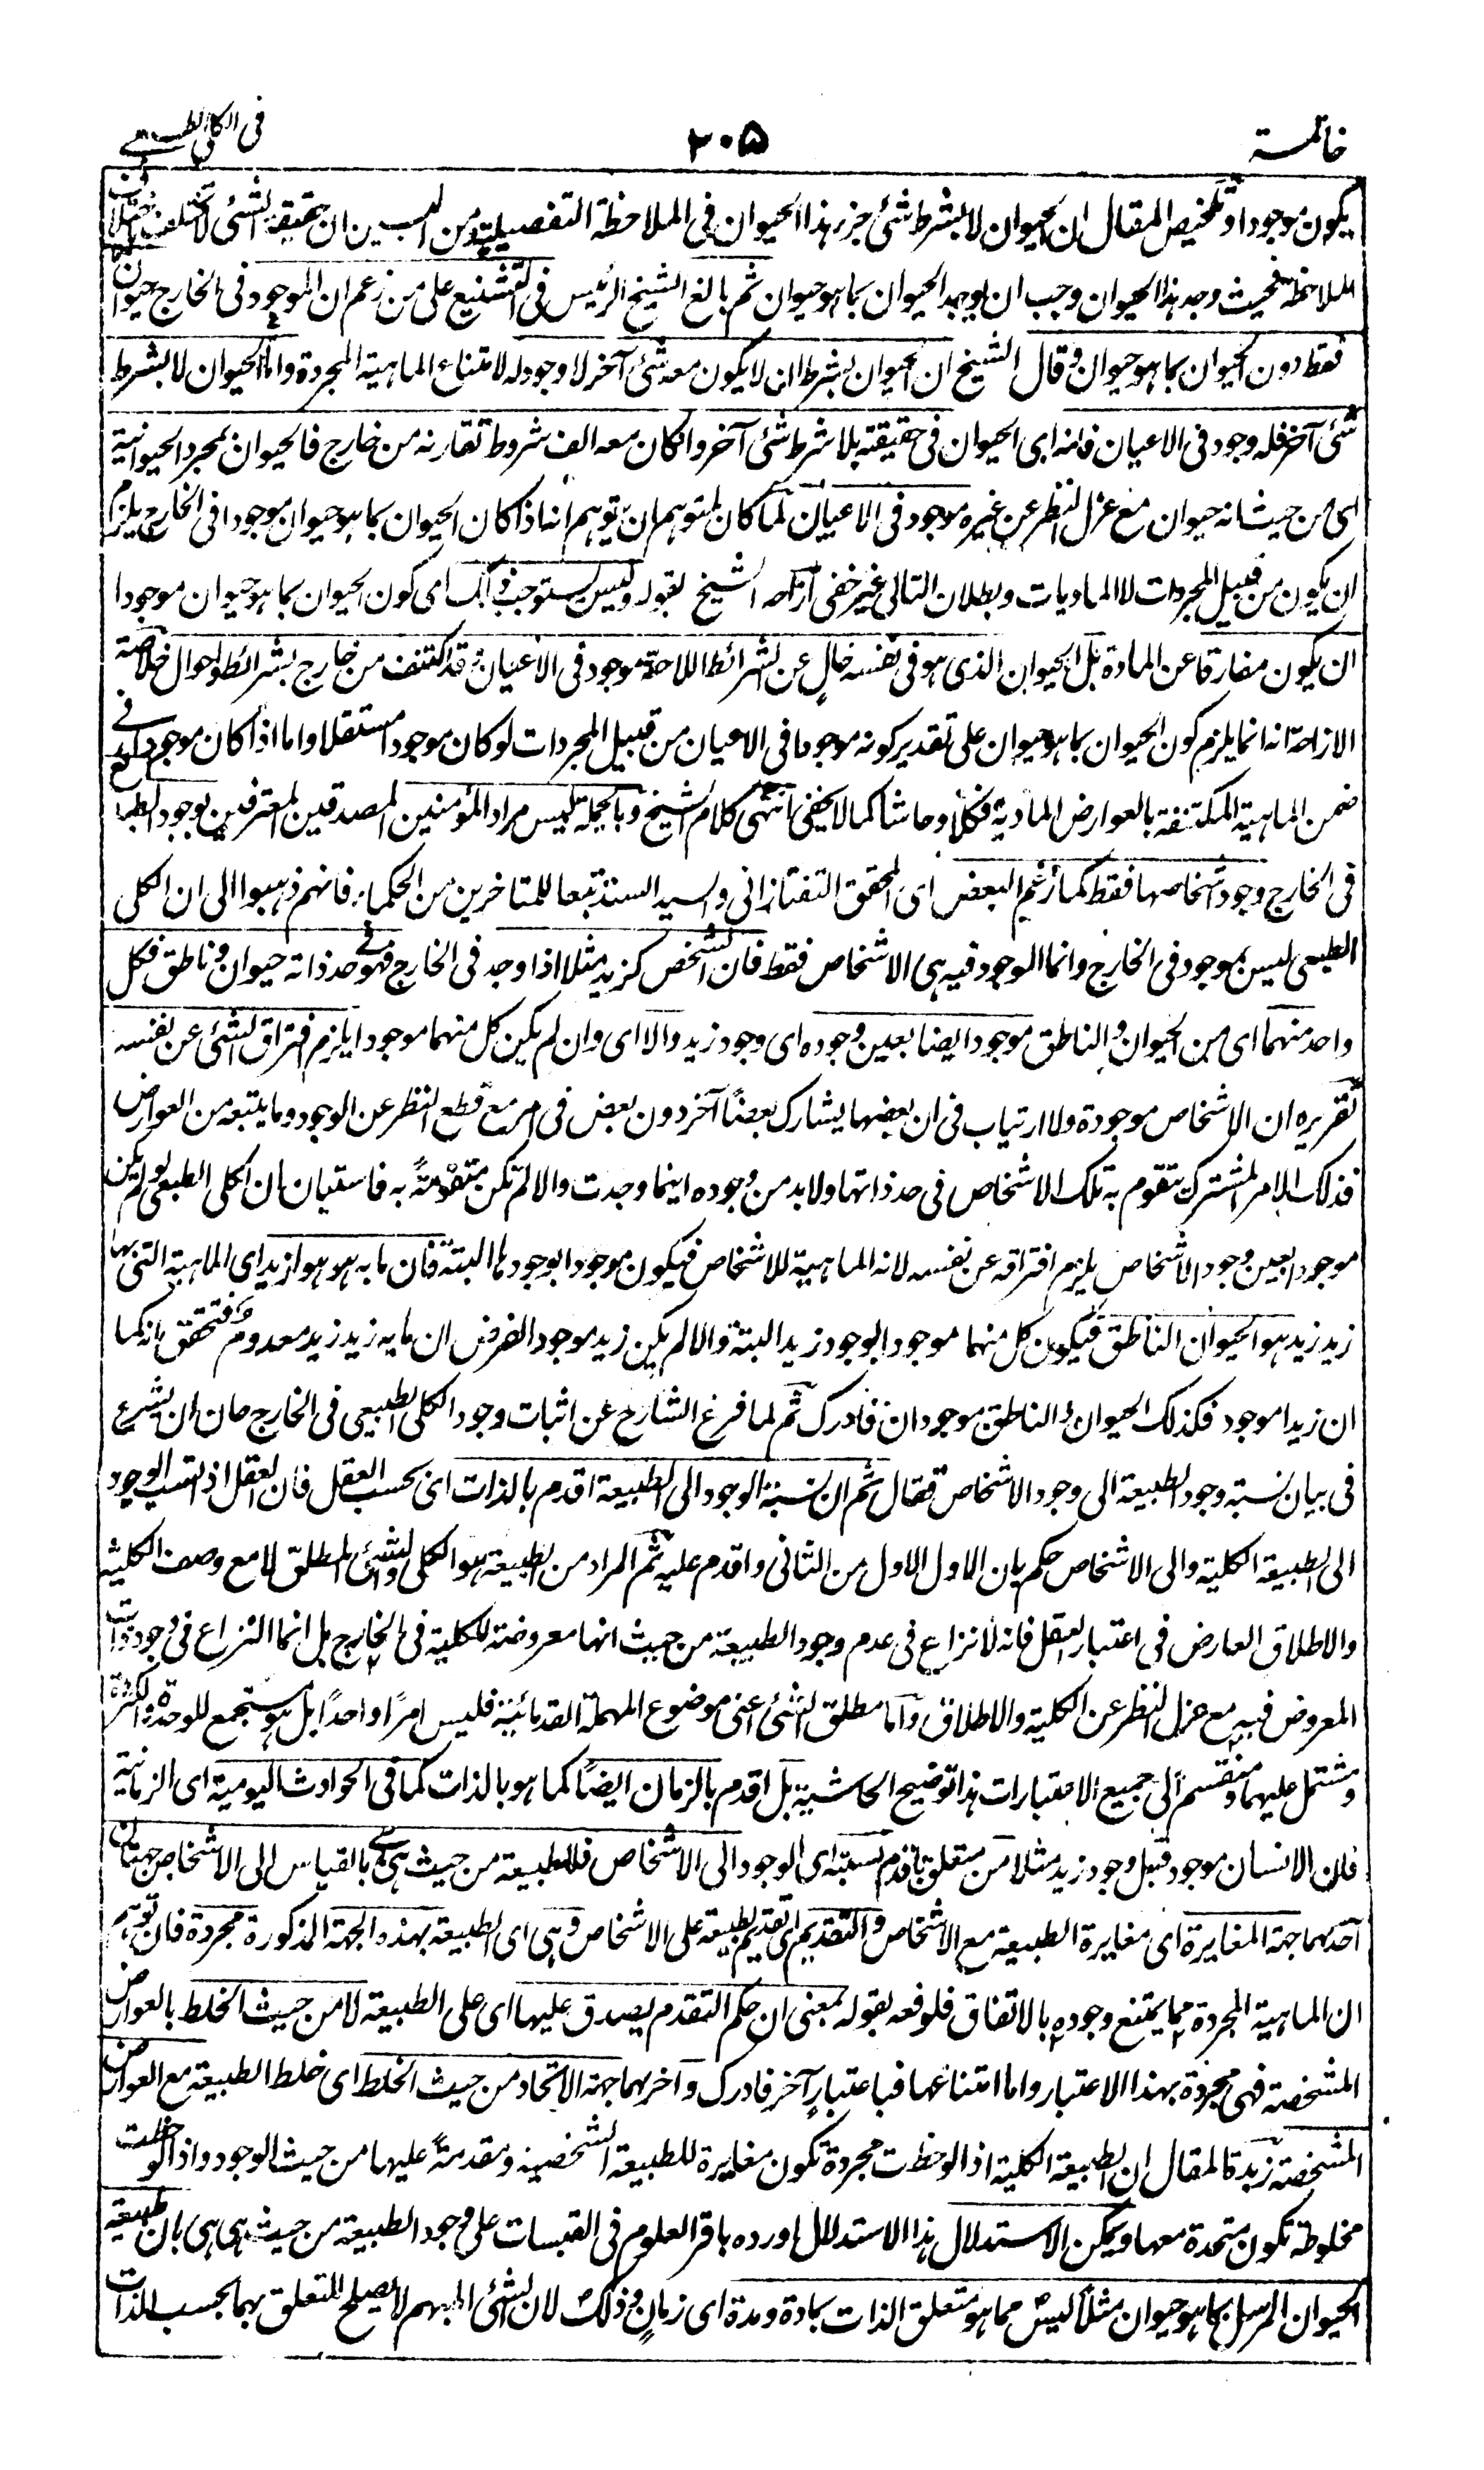 خاتمة
٢٠٥
فى الكلى الطبيعے
يكون موجودا و تلخيص المقال ان الحيوان لا بشرط شئ جزء هذا الحيوان فى الملاحظة التفصيلية ومن البين ان حقيقة الشئ لا تختلف باختلاف
الملاحظة فحيث وجد هذا الحيوان وجب ان يوجد الحيوان بما هو حيوان ثم بالغ الشيخ الرئيس فى التشنيع على من زعم ان الموجود فى الخارج حيوان ما
فقط دون الحيوان بما هو حيوان و قال الشيخ ان الحيوان بشرط ان لا يكون معه شئ آخر لا وجود له لامتناع الماهية المجردة واما الحيوان لا بشرط
شئ آخر فله وجود فى الاعيان فانه اى الحيوان فى حقيقته بلا شرط شئ آخر وان كان معه الف شروط تقارنه من خارج فالحيوان بمجرد الحيوانية
اى من حيث انه حيوان مع عزل النظر عن غيره موجود فى الاعيان لما كان لمتوهم ان يتوهم انه اذا كان الحيوان بما هو حيوان موجودا فى الخارج يلزم
ان يكون من قبيل المجردات لا الماديات وبطلان التالى غير خفى ازاحه الشيخ بقوله وليس يستوجب ذلك اى كون الحيوان بما هو حيوان موجودا
ان يكون مفارقا عن المادة بل الحيوان الذى هو فى نفسه خالٍ عن الشرائط اللاحقة موجود فى الاعيان وقد اكتنف من خارج بشرائط واحوال خلاصة
الازاحة انه انما يلزم كون الحيوان بما هو حيوان على تقدير كونه موجودا فى الاعيان من قبيل المجردات لو كان موجودا مستقلا واما اذا كان موجودا فى
ضمن الماهية المكتنفة بالعوارض المادية فكلا وحاشا كما لا يخفى انتهى كلام الشيخ و بالجملة ليس مراد المؤمنين المصدقين المعترفين بوجود الطبائع
فى الخارج وجود اشخاصها فقط كما زعم البعض اى المحقق التفتازانى والسيد السند تبعا للمتاخرين من الحكماء فانهم ذهبوا الى ان الكلى
الطبعى ليس بموجود فى الخارج وانما الموجود فيه هى الاشخاص فقط فان الشخص كزيد مثلا اذا وجد فى الخارج فهو فى حد ذاته حيوان و ناطق فكل
واحد منهما اى من الحيوان و الناطق موجود ايضا بعين وجوده اى وجود زيد والا اى وان لم يكن كل منهما موجودا يلزم افتراق الشئ عن نفسه
تقريره ان الاشخاص موجودة ولا ارتياب فى ان بعضها يشارك بعضًا آخر دون بعض فى امر مع قطع النظر عن الوجود وما يتبعه من العوارض
فذلك الامر المشترك يتقوم به تلك الاشخاص فى حد ذاتها ولا بد من وجوده اينما وجدت والا لم تكن متقومةً به فاستبان بان الكلى الطبعى لو لم يكن
موجودا بعين وجود الاشخاص يلزم افتراقه عن نفسه لانه الماهية للاشخاص فيكون موجودا بوجودها البتة فان ما به هو هو ازيد اى الماهية التى بها
زيد زيد هو الحيوان الناطق فيكون كل منهما موجودا بوجود زيد البتة والا لم يكن زيد موجودا لفرض ان ما به زيد زيد معدوم فتحقق بانه كما
ان زيدا موجود فكذلك الحيوان و الناطق موجودان فادرك ثم لما فرغ الشارح عن اثبات وجود الكلى الطبيعى فى الخارج حان ان يشرع
فى بيان نسبة وجود الطبيعة الى وجود الاشخاص فقال ثم ان نسبة الوجود الى الطبيعة اقدم بالذات اى بحسب العقل فان العقل اذا نسب الوجود
الى الطبيعة الكلية والى الاشخاص حكم بان الاول اولى من الثانى واقدم عليه ثم المراد من الطبيعة هو الكلى والشئ المطلق لا مع وصف الكلية
والاطلاق العارض فى اعتبار العقل فانه لا نزاع فى عدم وجود الطبيعة من حيث انها معروضة للكلية فى الخارج بل انما النزاع فى وجود ذات
المعروض فيه مع عزل النظر عن الكلية والاطلاق واما مطلق الشئ اعنى موضوع المهملة القدمائية فليس امرًا واحدًا بل هو مستجمع للوحدة والكثرة
ومشتمل عليهما ومنقسم الى جميع الاعتبارات هذا توضيح الحاشية بل اقدم بالزمان ايضًا كما هو بالذات كما فى الحوادث اليومية اى الزمانية
فلان الانسان موجود قبل وجود زيد مثلا من متعلق باقدم نسبته اى الوجود الى الاشخاص فللطبيعة من حيث هى هى بالقياس الى الاشخاص جهتان
احدهما جهة المغايرة اى مغايرة الطبيعة مع الاشخاص والتقديم اى تقديم الطبيعة على الاشخاص و هى اى الطبيعة بهذه الجهة المذكورة مجردة فان توهم
ان الماهية المجردة مما يمتنع وجوده بالاتفاق فلو فعه بقوله بمعنى ان حكم التقدم يصدق عليها اى على الطبيعة لا من حيث الخلط بالعوارض
المشخصة فهى مجردة بهذا الاعتبار واما امتناعها فباعتبارٍ آخر فادرك و آخر بهما جهة الاتحاد من حيث الخلط اى خلط الطبيعة مع العوارض
المشخصة زبدة المقال ان الطبيعة الكلية اذا لوحظت مجردة تكون مغايرة للطبيعة الشخصية ومقدمةً عليها من حيث الوجود واذا لوحظت
مخلوطة تكون متحدة معها ويمكن الاستدلال هذا الاستدلال اورده باقر العلوم فى القبسات على وجود الطبيعة من حيث هى هى بان طبيعة
الحيوان المرسل بما هو حيوان مثلاً ليس مما هو متعلق الذات بمادة ومدة اى زمانٍ وذلك لان الشئ المبهم لا يصلح للتعلق بهما بحسب الذات